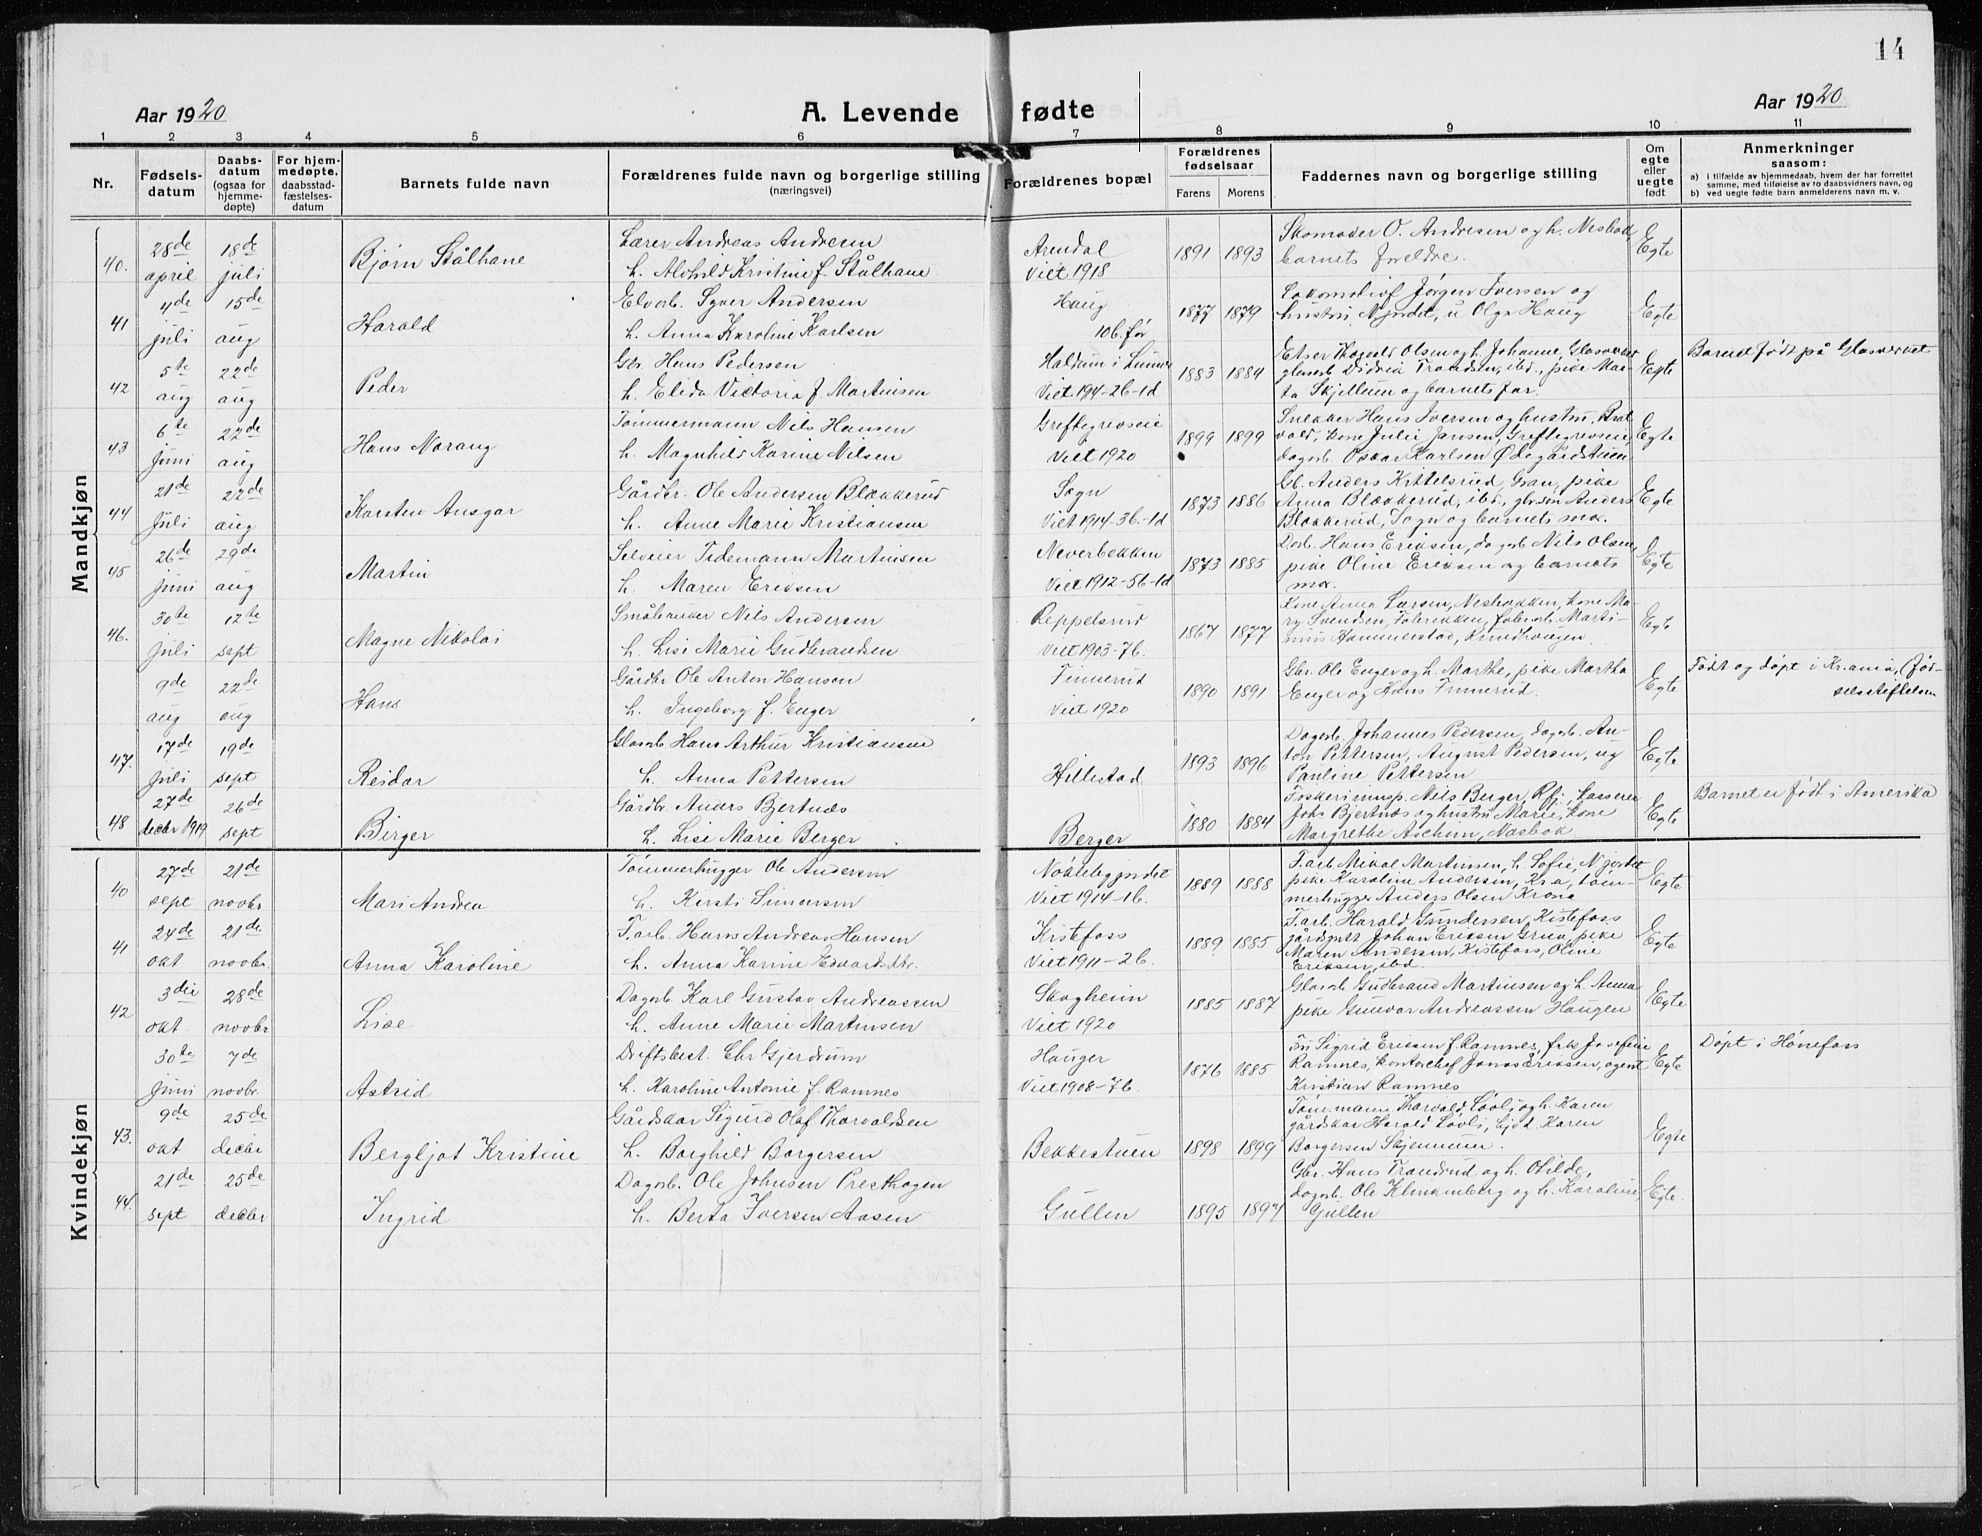 14
Aar 1920
A. Levende fødte
Aar 1920
1 2 3 4 5 6 7 8 9 10 11
Nr.
Fødsels-
datum
Daabs-
datum
(ogsaa for
hjemme-
døpte)
For hjem-
medøpte,
daabsstad-
fæstelses-
datum
Barnets fulde navn
Forældrenes fulde navn og borgerlige stilling
(næringsvei)
Forældrenes bopæl
Forældrenes
fødselsaar
Farens Morens
Faddernes navn og borgerlige stilling
Om
egte
eller
uegte
født
Anmerkninger
saasom:
a) i tilfælde av hjemmedaab, hvem der har forrettet
samme, med tilføielse av to daabsvidners navn, og
b) ved uegte fødte barn anmelderens navn m. v.
Mandkjøn
40. 28de april 18de juli Bjørn Stålhane
Lærer Andreas Andresen
h. Alvhild Kristine f. Stålhane
Arendal
Viet 1918
1891 1893
Skomaker O. Andresen og h. Nesbak,
barnets foreldre.
Egte
41 4de juli 15de aug Harald
Elvarb. Syver Andersen
h. Anna Karoline Karlsen
Haug
10b. før
1877 1879
Lokomotivf Jørgen Iversen og
hustru, Njordet, u Olga Haug
Egte
42 5te aug 22de aug Peder
Gbr. Hans Pedersen
h. Elida Victoria f. Martinsen
Haldum i Lunner
Viet 1914-2b-1d
1883 1884
Etser Thorvald Olsen og h. Johanne, Glasverket
glasarb Didrik Trondsen, ibd, pike Mar-
ta Skjellum og barnets far.
Egte
Barnet født på Glasverket
43 6te Juni 22de aug Hans Norang
Tømmermann Nils Hansen
h. Magnhild Karine Nilsen
Greftegrevseie
Viet 1920
1899 1899
Snekker Hans Iversen og hustru, Brat
vold, kone Julie Jansen, Greftegrevseie,
dagarb. Oscar Karlsen Ødegårdstuen
Egte
44 21de Juli 22de aug Karsten Ansgar
Gårdbr. Ole Andersen Blækkerud
h. Anne Marie Kristiansen
Sogn
Viet 1914-3b.-1d
1873 1886
Gb. Anders Kittelsrud, Gran, pike
Anna Blækkerud, ibd., gbrsøn Anders
Blækkerud, Sogn og barnets mor.
Egte
45 26de Juni 29de aug Martin
Selveier Tidemann Martinsen
h. Maren Eriksen
Neverbekken
Viet 1912-5b-1d
1873 1885
Darb. Hans Eriksen, dagarb Nils Olsen,
pike Oline Eriksen og barnets
mor.
Egte
46. 30te Juli 12te sept Magne Nikolai
Småbruker Nils Andersen
h. Lisi Marie Gudbrandsen
Reppelsrud
Viet 1903-7b.
1867 1877
Kone Anna Larsen, Nesbakken, kone Ma-
ry Svendsen, Fabrikken, fabarb. Marti-
nius Hammerstad,
Egte
9de aug 22de aug Hans
Gårdbr Ole Anton Hanson
h. Ingeborg f. Enger
Finnerud
Viet 1920
1890 1891
Gbr. Ole Enger og h. Marthe, pike Martha
Enger og Hans Finnerud.
Egte
Født og døpt i Kr.ania, (Fød-
selsstiftelsen
47. 17de Juli 19de sept Reidar
Glasarb. Hans Arthur Kristiansen
h. Anna Pettersen
Hillestad
1893 1896
Dagarb. Johannes Pedersen, dagarb. An-
ton Pettersen, August Pedersen, ug
Pauline Pettersen
Egte
48 27de decbr 1919 26de sept Birger
Gårdbr. Anders Bjertnæs
h. Lise Marie Berger
Berger
1880 1884
Fiskeriinsp. Nils Berger, Rfj. kasserer
Johs Bjertnæs og hustru Marie, kone
Margrethe Aschem, Næsbak
Egte
Barnet er født i Amerika
Kvindekjøn
40 27de sept 21de novbr Mari Andrea
Tømmerhugger Ole Andersen
h. Kirsti Simensen
Nøkleby
Viet 1914-1b.
1889 1888
F.arb. Mikal Martinsen, h. Sofie, Njordet
pike Karoline Andersen, Kr.a, tøm-
merhugger Anders Olsen Krona
Egte
41 24de okt 21de novbr. Anna Karoline
F.arb. Hans Andreas Hansen
h. Anna Karine Edvardsdtr.
Kistefoss
Viet 1911-2b.
1889 1885
F.arb. Harald Gundersen, Kistefoss
gårdgutt Johan Eriksen Grua, pike
Maren Andersen, Kistefoss, Oline
Eriksen, ibd.
Egte
42 3die okt. 28de novbr Lise
Dagarb. Karl Gustav Andreassen
h. Anne Marie Martinsen
Skogheim
Viet 1920
1885 1887
Glasarb Gudbrand Martinsen og h. Anna
pike Gunvor Andreassen Haugen
Egte
30te Juni 7de novbr. Astrid
Driftsbest. Chr Gjerdrum
h. Karoline Antonie f. Ramnes
Hauger
Viet 1908-7b.
1876 1885
Fru Sigrid Eriksen f. Ramnes, frk Josefine
Ramnes, kontorchef Jonas Erissen, agent
Kristian Ramnes
Egte
Døpt i Hønefoss
43. 9de okt 25de decbr Bergljot Kristine
Gårdskar Sigurd Olaf Thorvaldsen
h. Borghild Borgersen
Bekkestuen
1898 1899
Tøm.mann Thorvald Løvli og h. Karen
gårdskar Harald Løvli, Karen
Borgersen Skjennum.
Egte
44. 21de sept 25de decbr Ingrid
Dagarb. Ole Johnsen Presthagen
h. Berta Iversen Aasen
Gullen
1895 1897
Gbr. Hans Trandrud og h. Otilde,
dagarb. Ole Klinkenberg og h. Karoline
Gullen
Egte.